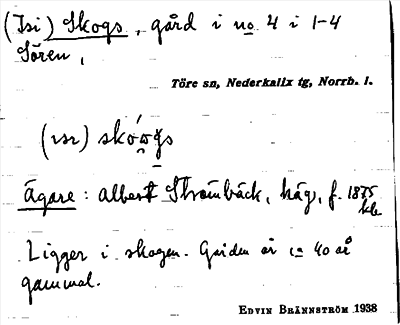 (Isi) Skogs, gård i no 4 i 1-4
Sören,
Töre sn, Nederkalix tg, Norrb. l.
(ısı) skó̬gs
Ägare: Albert Strömbäck, häg, f. 1875
Ligger i skogen. Gården är ca 40 år
gammal.
EDVIN BRÄNNSTRÖM 1938